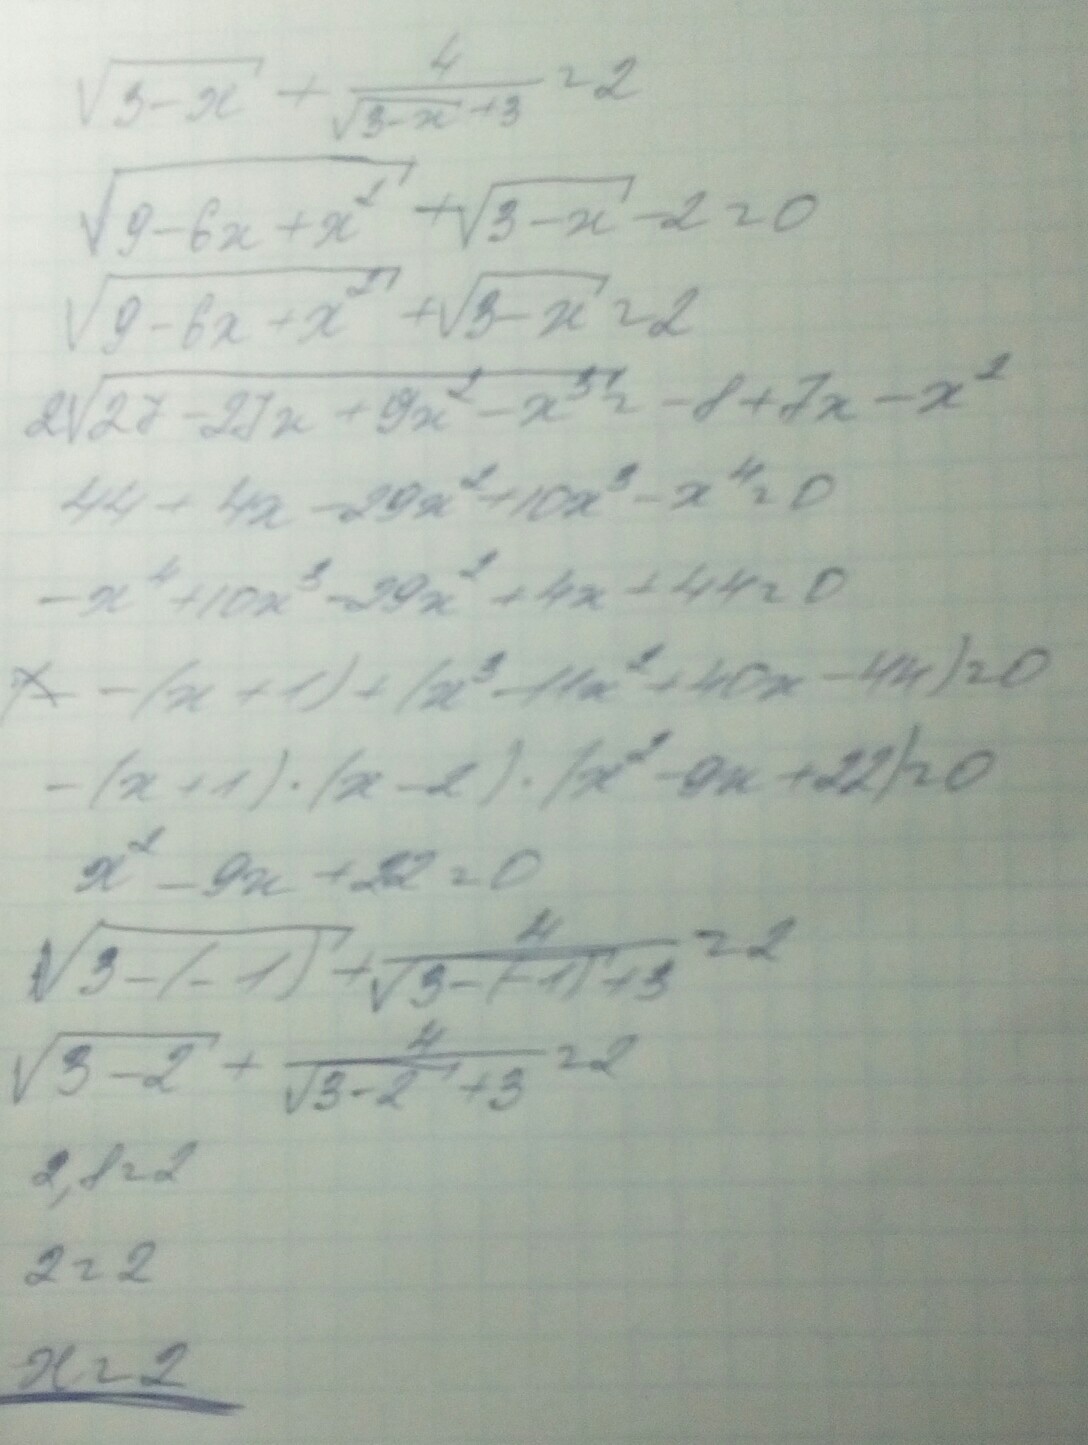 √(3-x) + 4/(√(3-x) +3) = 2
√(9-6x+x²) + √(3-x) -2 = 0
√(9-6x+x²) + √(3-x) = 2
2√(27-27x+9x²-x³) = -8+7x-x²
44+4x-29x²+10x³-x⁴=0
-x⁴+10x³-29x²+4x+44=0
-(x+1)+(x³-11x²+40x-44)=0
-(x+1)·(x-2)·(x²-9x+22)=0
x²-9x+22=0
√(3-(-1)) + 4/(√(3-(-1)) +3) = 2
√(3-2) + 4/(√(3-2) +3) = 2
2,8=2
2=2
x=2